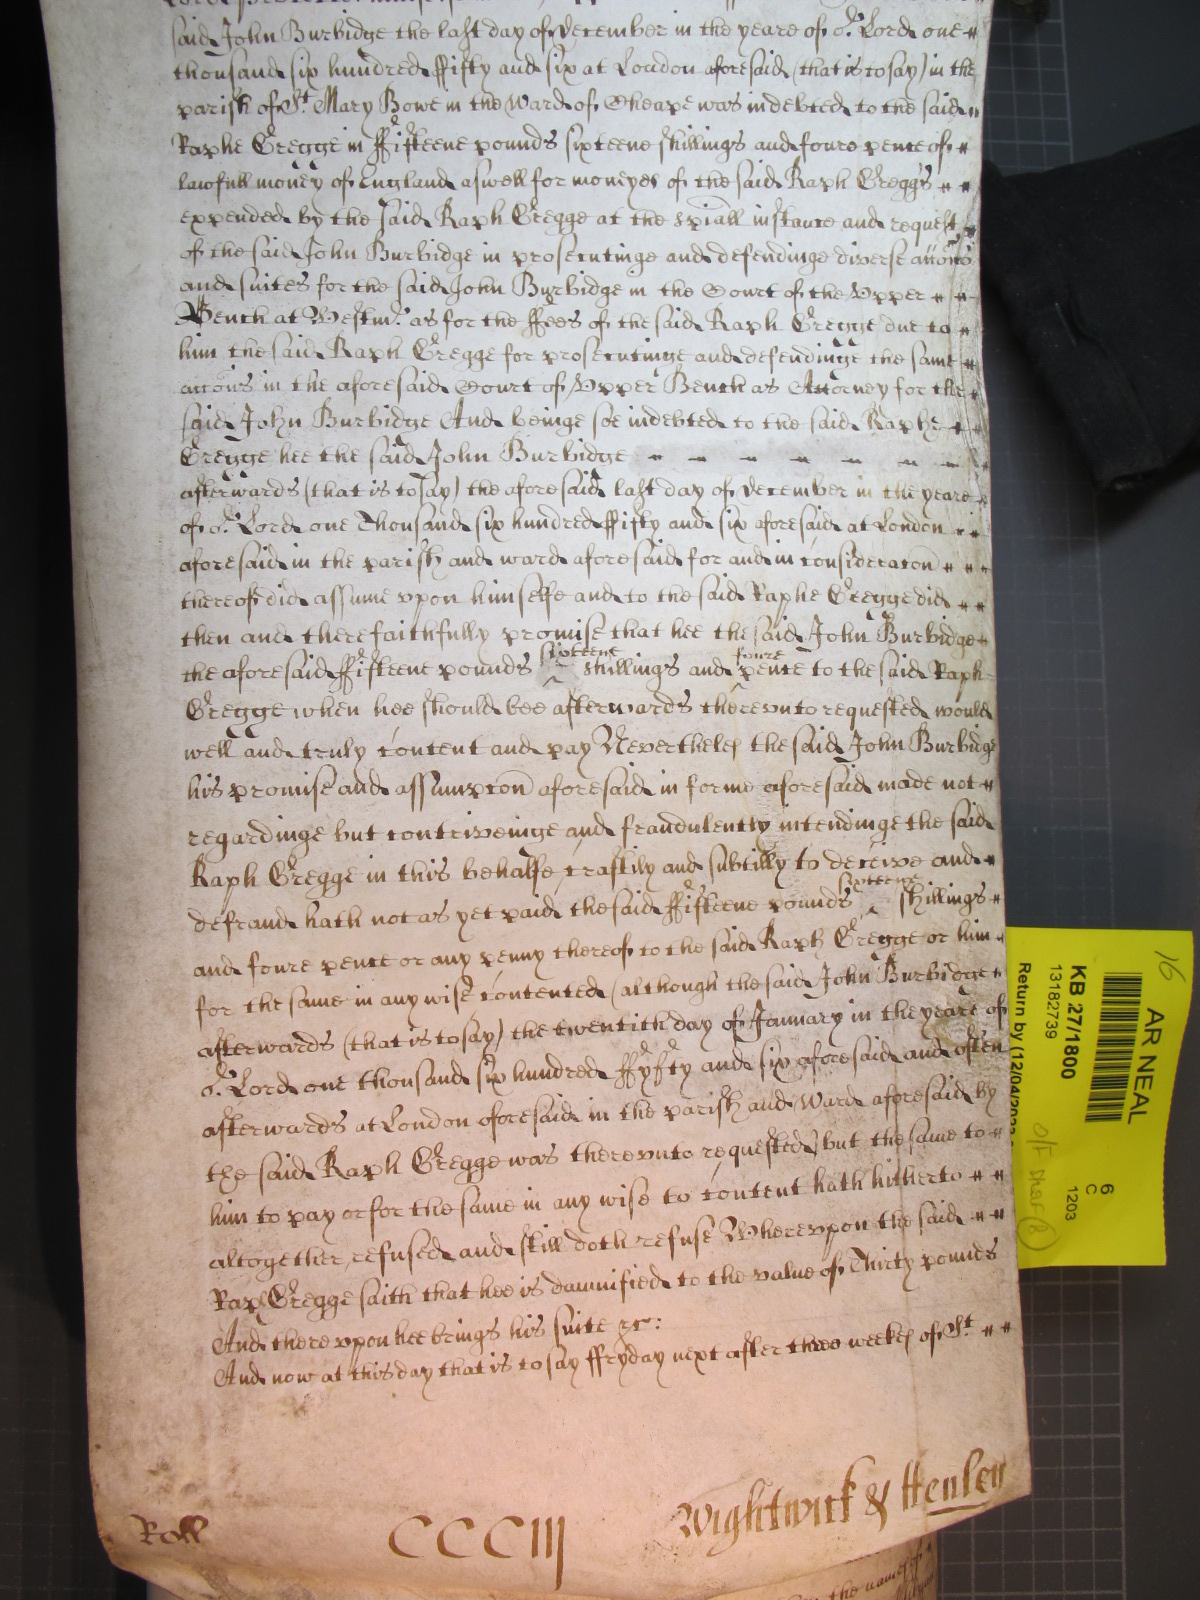 said John Burbidge the last day of December in the yeare of or. Lord one
thousand six hundred ffifty and six at London aforesaid (that is to say) in the
parish of St. Mary Bowe in the Ward of Cheape was indebted to the said
Raphe Gregge in ffifteene pounds sixteene shillings and foure pence of
lawfull money of England aswell for moneyes of the said Raph Greggs
expended by the said Raph Gregge at the spiall instance and request
of the said John Burbidge in prosecutinge and defendinge diverse accons
and suites for the said John Burbidge in the Court of the Vpper
Bench at Westmr. as for the ffees of the said Raph Gregge due to
him the said Raph Gregge for prosecutinge and defendinge the same
accons in the aforesaid Court of Vpper Bench as Attorney for the
said John Burbidge And beinge soe indebted to the said Raphe
Gregge hee the said John Burbidge
afterwards (that is to say) the aforesaid last day of December in the yeare
of or. Lord one Thousand six hundred ffifty and six aforesaid at London
aforesaid in the parish and ward aforesaid for and in consideracon
thereof did assume vpon himselfe and to the said Raphe Gregge did
then and there faithfully promise that hee the said John Burbidge
the aforesaid ffifteene pounds sixteene shillings and foure pence to the said Raph
Gregge when hee should bee afterwards therevnto requested would
well and truly content and pay Neverthelesse the said John Burbidge
his promise and assumpcon aforesaid in forme aforesaid made not
regardinge but contriveinge and fraudulently intendinge the said
Raph Gregge in this behalfe craftily and subtilly to deceive and
defraud hath not as yet paid the said ffifteene pounds sixteene shillings
and foure pence or any penny thereof to the said Raph Gregge or him
for the same in any wise contented (although the said John Burbidge
afterwards (that is to say) the twentith day of January in the yeare of
or. Lord one thousand six hundred ffyfty and six aforesaid and often
afterwards at London aforesaid in the parish and Ward aforesaid by
the said Raph Gregge was therevnto requested) but the same to
him to pay or for the same in any wise to content hath hitherto
altogether refused and still doth refuse Wherevpon the said
Raph Gregge saith that hee is damnified to the value of Thirty pounds
And therevpon hee brings his suite &c:
And now at this day that is to say ffryday next after three weekes of St
Wightwick & Henley
Roll CCCIII
the name of
16
AR NEAL
KB 27/1800
13182739
Return by (12/04/2023
6
C
1203